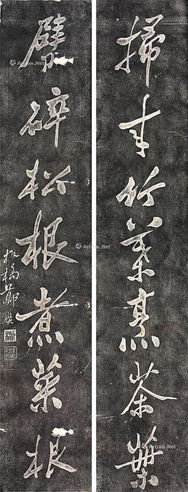 掃来竹葉烹茶葉
劈碎松根煮菜根
板橋鄭燮